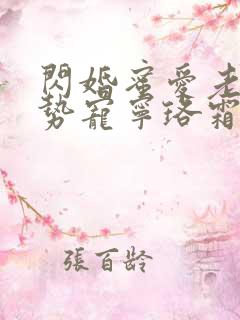 閃婚蜜愛老
勢寵寧珞霜
張百齡